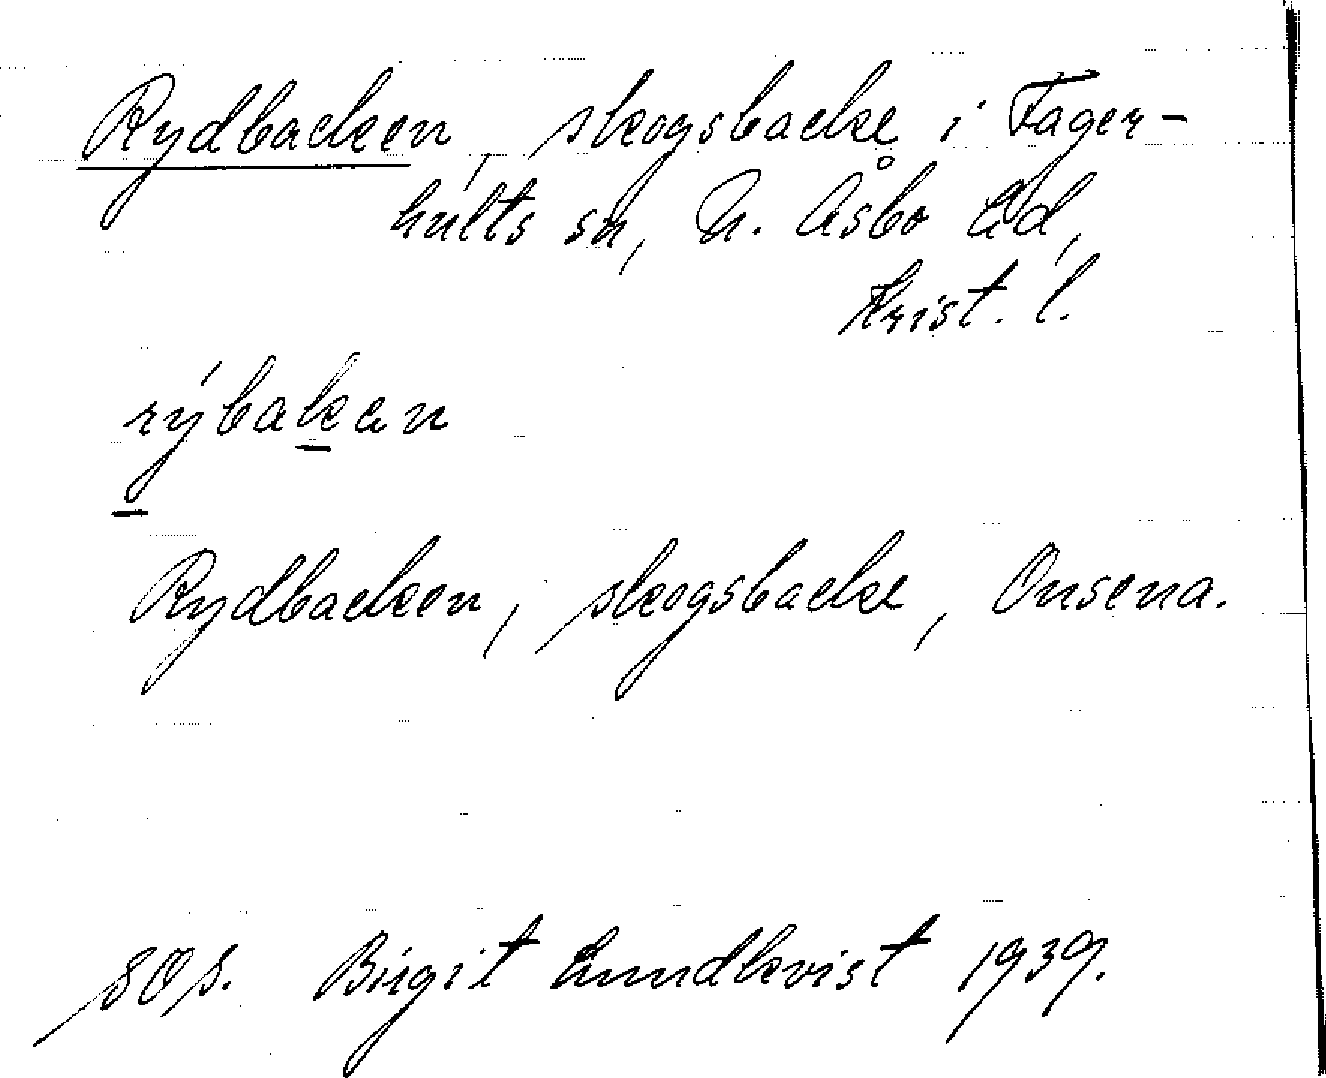 Rydbacken, skogsbacke i Fager-
hults sn, N. Åsbo hd,
Krist. l.
rýbakan
Rydbacken, skogsbacke, Onsena.
SOS. Birgit Lundkvist 1939.